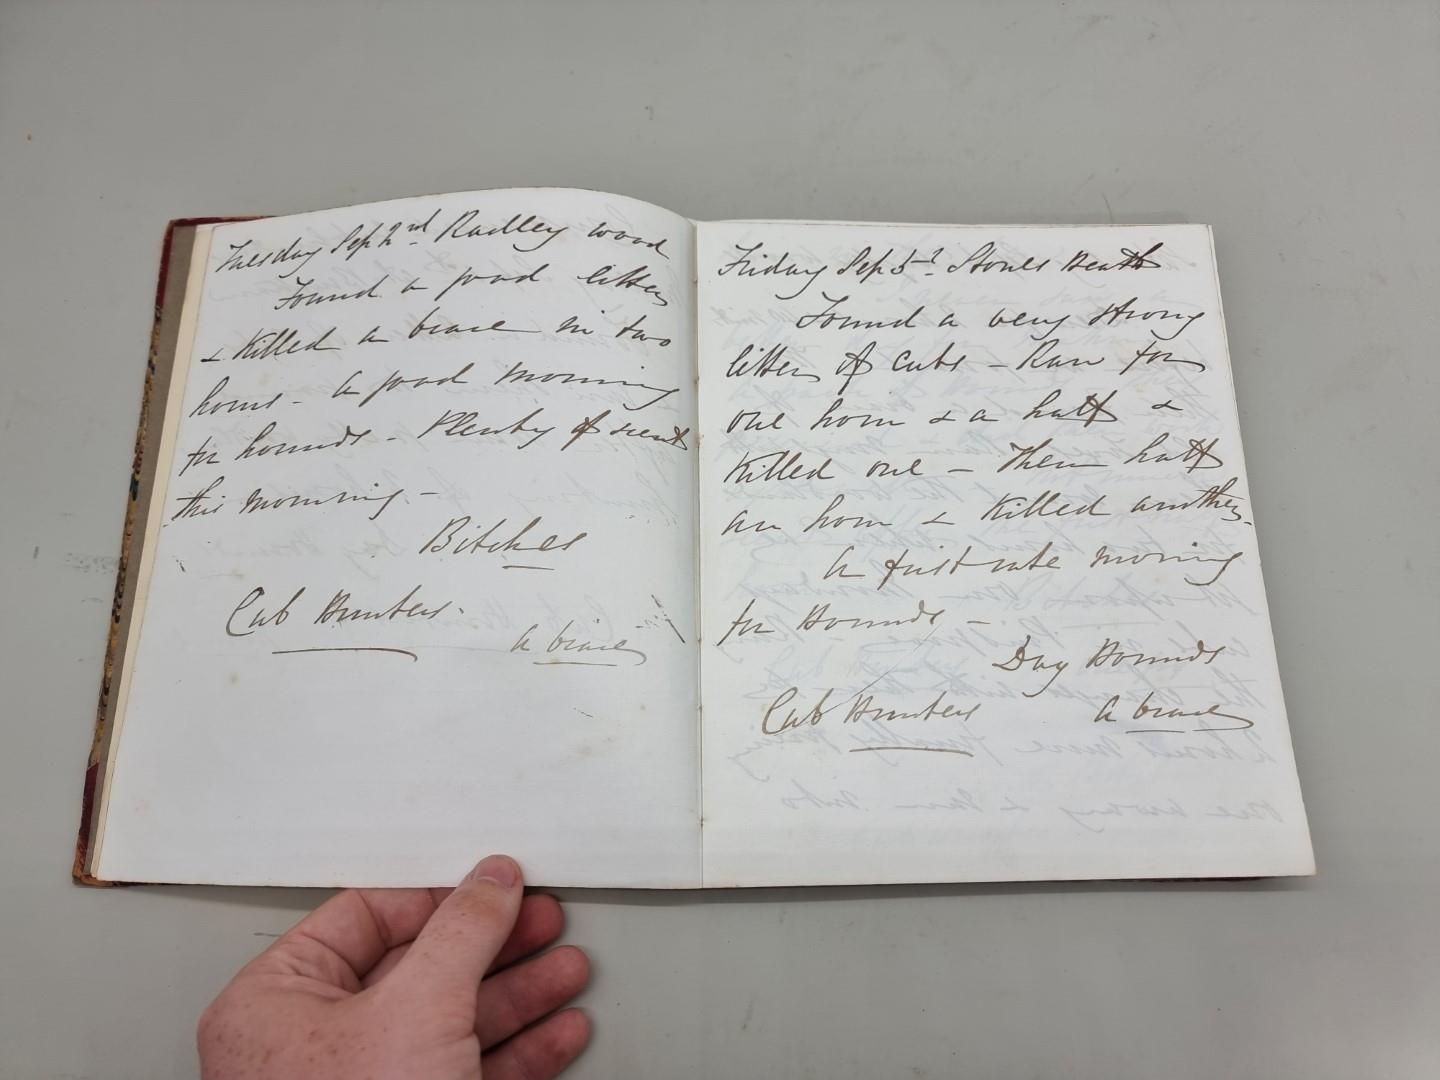 Tuesday Sep 2nd. Radley wood
Found a good litter
& Killed a brace in two
hours - a good morning
for hounds - Plenty of scent
this morning -
Bitches
Cub Hunters.
a brace
Friday Sep 5d. Stones Heath
Found a very strong
litter of cubs - Ran for
one hour & a half &
Killed one - Then half
an hour & Killed another.
A first rate morning
for Hounds -
Dog Hounds
Cub Hunters
a brace